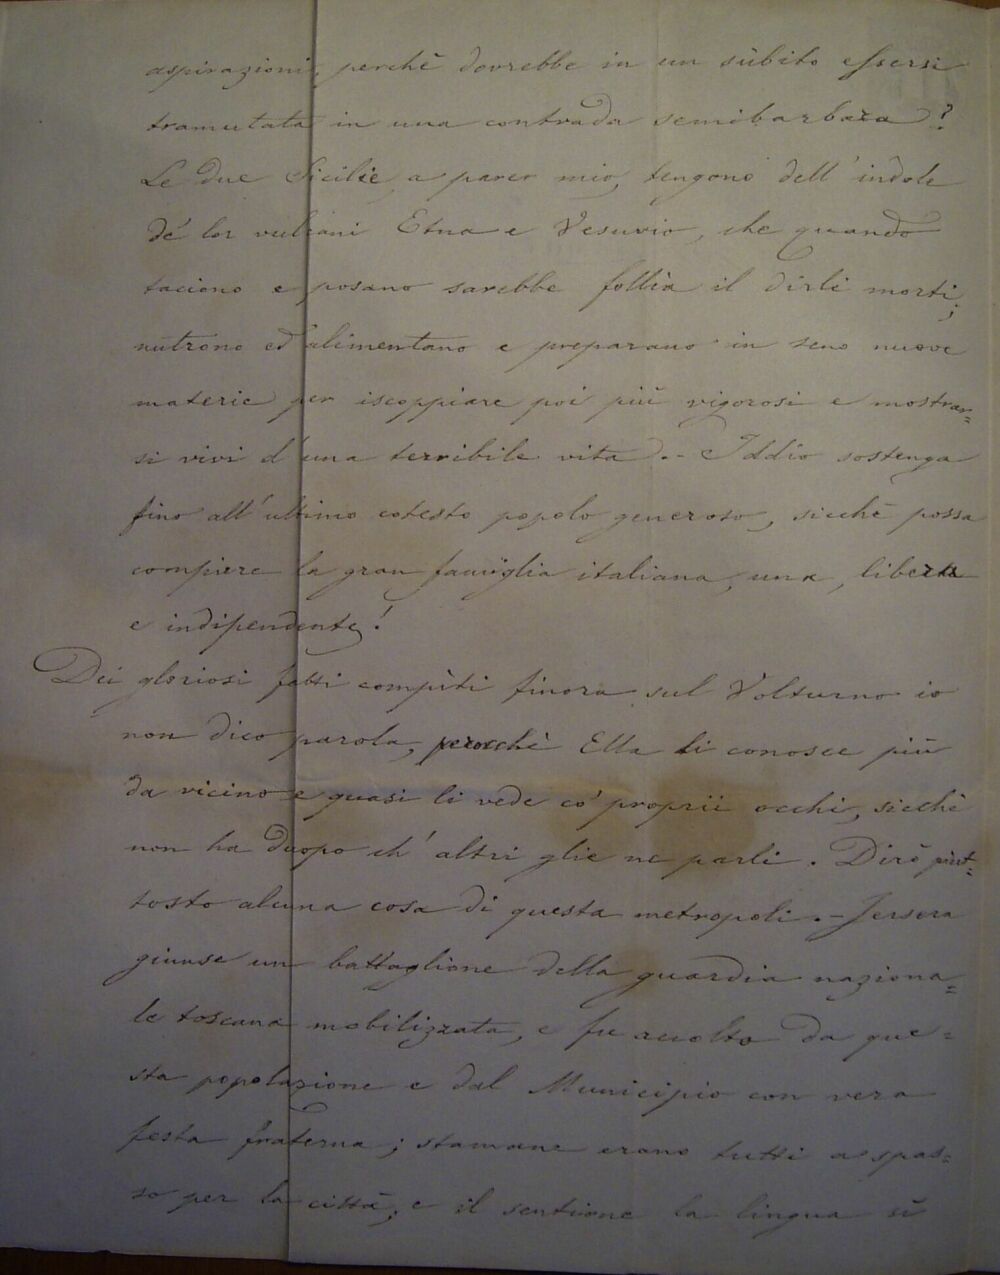 aspirazioni, perchè dovrebbe in un sùbito essersi
tramutata in una contrada semibarbara?
Le due Sicilie, a parer mio, tengono dell'indole
de' lor vulcani Etna e Vesuvio, che quando
taciono e posano sarebbe follìa il dirli morti;
nutrono ed alimentano e preparano in seno nuove
materie per iscoppiare poi più vigorosi e mostrar=
si vivi d'una terribile vita. - Iddio sostenga
fino all'ultimo cotesto popolo generoso, sicchè possa
compiere la gran famiglia italiana, una, libera
e indipendente!
Dei gloriosi fatti compìti finora sul Volturno io
non dico parola, perocchè Ella li conosce più
da vicino e quasi li vede co' proprii occhi, sicchè
non ha duopo ch'altri glie ne parli. Dirò piut=
tosto alcuna cosa di questa metropoli. - Jersera
giunse un battaglione della guardia naziona=
le toscana mobilizzata, e fu accolto da que=
sta popolazione e dal Municipio con vera
festa fraterna; stamane erano tutti a spas=
so per la città, e il sentirne la lingua sì